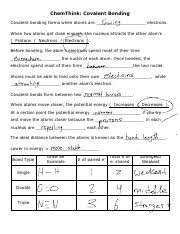 ChemThink: Covalent Bonding
Covalent bonding forms when atoms are sharing electrons.
When two atoms get close enough, the nucleus attracts the other atom's
[ Protons / Neutrons / Electrons ].
Before bonding, the atom's electrons spend most of their time
of their nucleus of each atom. Once bonded, the
electrons spend most of their time between the two nuclei.
Atoms must be able to hold onto their own electrons while
attracting another atom's electrons
Covalent bonds form between two normal bonds.
When atoms move closer, the potential energy [ Increases / Decreases ].
When atoms get too close, the potential energy if you try
and move the atoms closer because the protons in each
nucleus are repelling each other.
The ideal distance between the atoms is known as the bond length
Lower in energy = more stable
Bond Type
Example
# of paired e
Total # of e shared
Strongest/ Weakest
Single H - H 1 2 weakest
Double O = O 2 4 middle
Triple N ≡ N 3 6 strongest